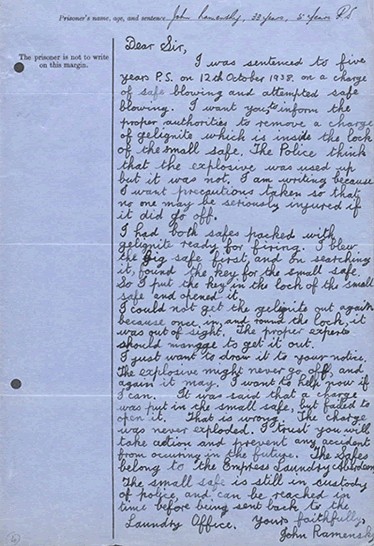 Prisoner's name, age, and sentence John Ramensky, 33 years, 5 years P.S
The prisoner is not to write
on this margin.
Dear Sir,
I was sentenced to five
years P.S. on 12th October 1938. on a charge
of safe blowing and attempted safe
blowing. I want you to inform the
proper authorities to remove a charge
of gelignite which is inside the lock
of the small safe. The Police think
that the explosive was used up
but it was not. I am writing because
I want precautions taken so that
no one may be seriously injured if
it did go off.
I had both safes packed with
gelignite ready for firing. I blew
the big safe first, and on searching
it, found the key for the small safe.
So I put the key in the lock of the small
safe and opened it.
I could not get the gelignite out again
because once in, and round the lock, it
was out of sight. The proper experts
should manage to get it out.
I just want to draw it to your notice.
The explosive might never go off, and
again it may. I want to help now if
I can. It was said that a charge
was put in the small safe, but failed to
open it. That is wrong. The charge
was never exploded. I trust you will
take action and prevent any accident
from occuring in the future. The Safes
belong to the Empress Laundry Aberdeen
The small safe is still in custody
of police, and can be reached in
time before being sent back to the
Laundry Office. Yours faithfully,
John Ramensky